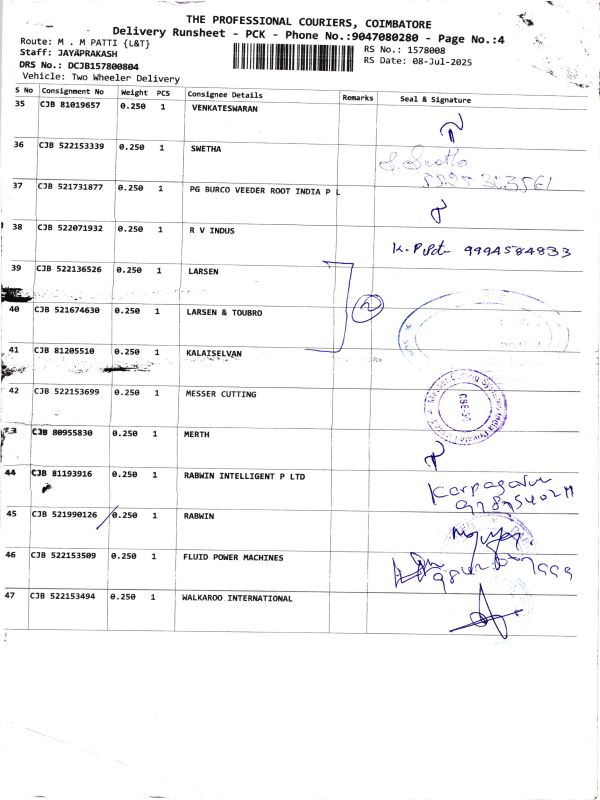 THE PROFESSIONAL COURIERS, COIMBATORE
Delivery Runsheet - PCK - Phone No.:9047080280 - Page No.:4
Route: M . M PATTI {L&T}
RS No.: 1578008
Staff: JAYAPRAKASH
RS Date: 08-Jul-2025
DRS No.: DCJB157800804
Vehicle: Two Wheeler Delivery
S No Consignment No Weight PCS Consignee Details Remarks Seal & Signature
35 CJB 81019657 0.250 1 VENKATESWARAN
36 CJB 522153339 0.250 1 SWETHA
37 CJB 521731877 0.250 1 PG BURCO VEEDER ROOT INDIA P L
38 CJB 522071932 0.250 1 R V INDUS
9994584833
39 CJB 522136526 0.250 1 LARSEN
40 CJB 521674630 0.250 1 LARSEN & TOUBRO
41 CJB 81205510 0.250 1 KALAISELVAN
42 CJB 522153699 0.250 1 MESSER CUTTING
CJB 80955830 0.250 1 MERTH
44 CJB 81193916 0.250 1 RABWIN INTELLIGENT P LTD
45 CJB 521990126 0.250 1 RABWIN
46 CJB 522153509 0.250 1 FLUID POWER MACHINES
47 CJB 522153494 0.250 1 WALKAROO INTERNATIONAL